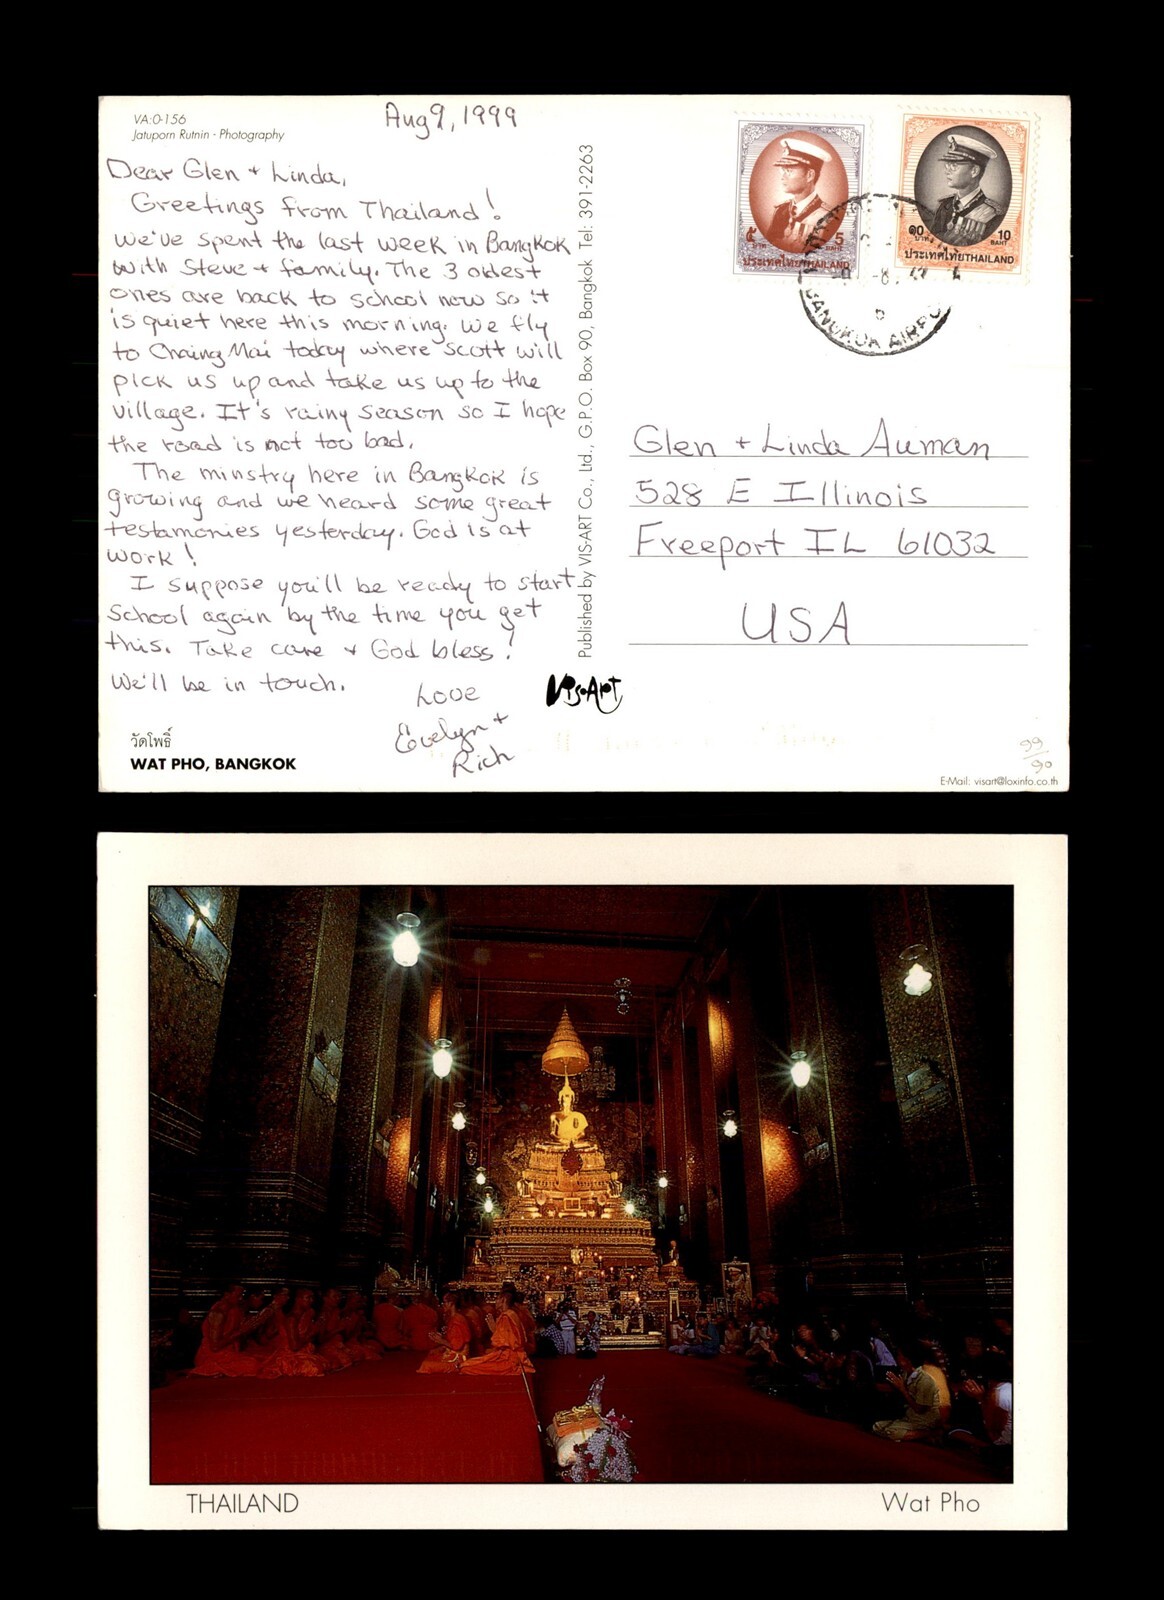 VA:0-156
Jatuporn Rutnin - Photography
Aug 9, 1999
Dear Glen + Linda,
Greetings from Thailand!
We've spent the last week in Bangkok
with Steve + family. The 3 oldest
ones are back to school now so it
is quiet here this morning. We fly
to Chaing Mai today where Scott will
pick us up and take us up to the
village. It's rainy season so I hope
the road is not too bad.
The minstry here in Bangkok is
growing and we heard some great
testamonies yesterday. God is at
work!
I suppose you'll be ready to start
school again by the time you get
this. Take care + God bless!
We'll be in touch.
Love
Evelyn +
Rich
วัดโพธิ์
WAT PHO, BANGKOK
Published by VIS-ART Co., Ltd., G.P.O. Box 90, Bangkok Tel: 391-2263
Vis-Art
๕ บาท 5 BAHT
ประเทศไทย THAILAND
๑๐ บาท 10 BAHT
ประเทศไทย THAILAND
BANGKOK AIRPO
Glen + Linda Auman
528 E Illinois
Freeport IL 61032
USA
99
90
E-Mail: visart@loxinfo.co.th
THAILAND
Wat Pho